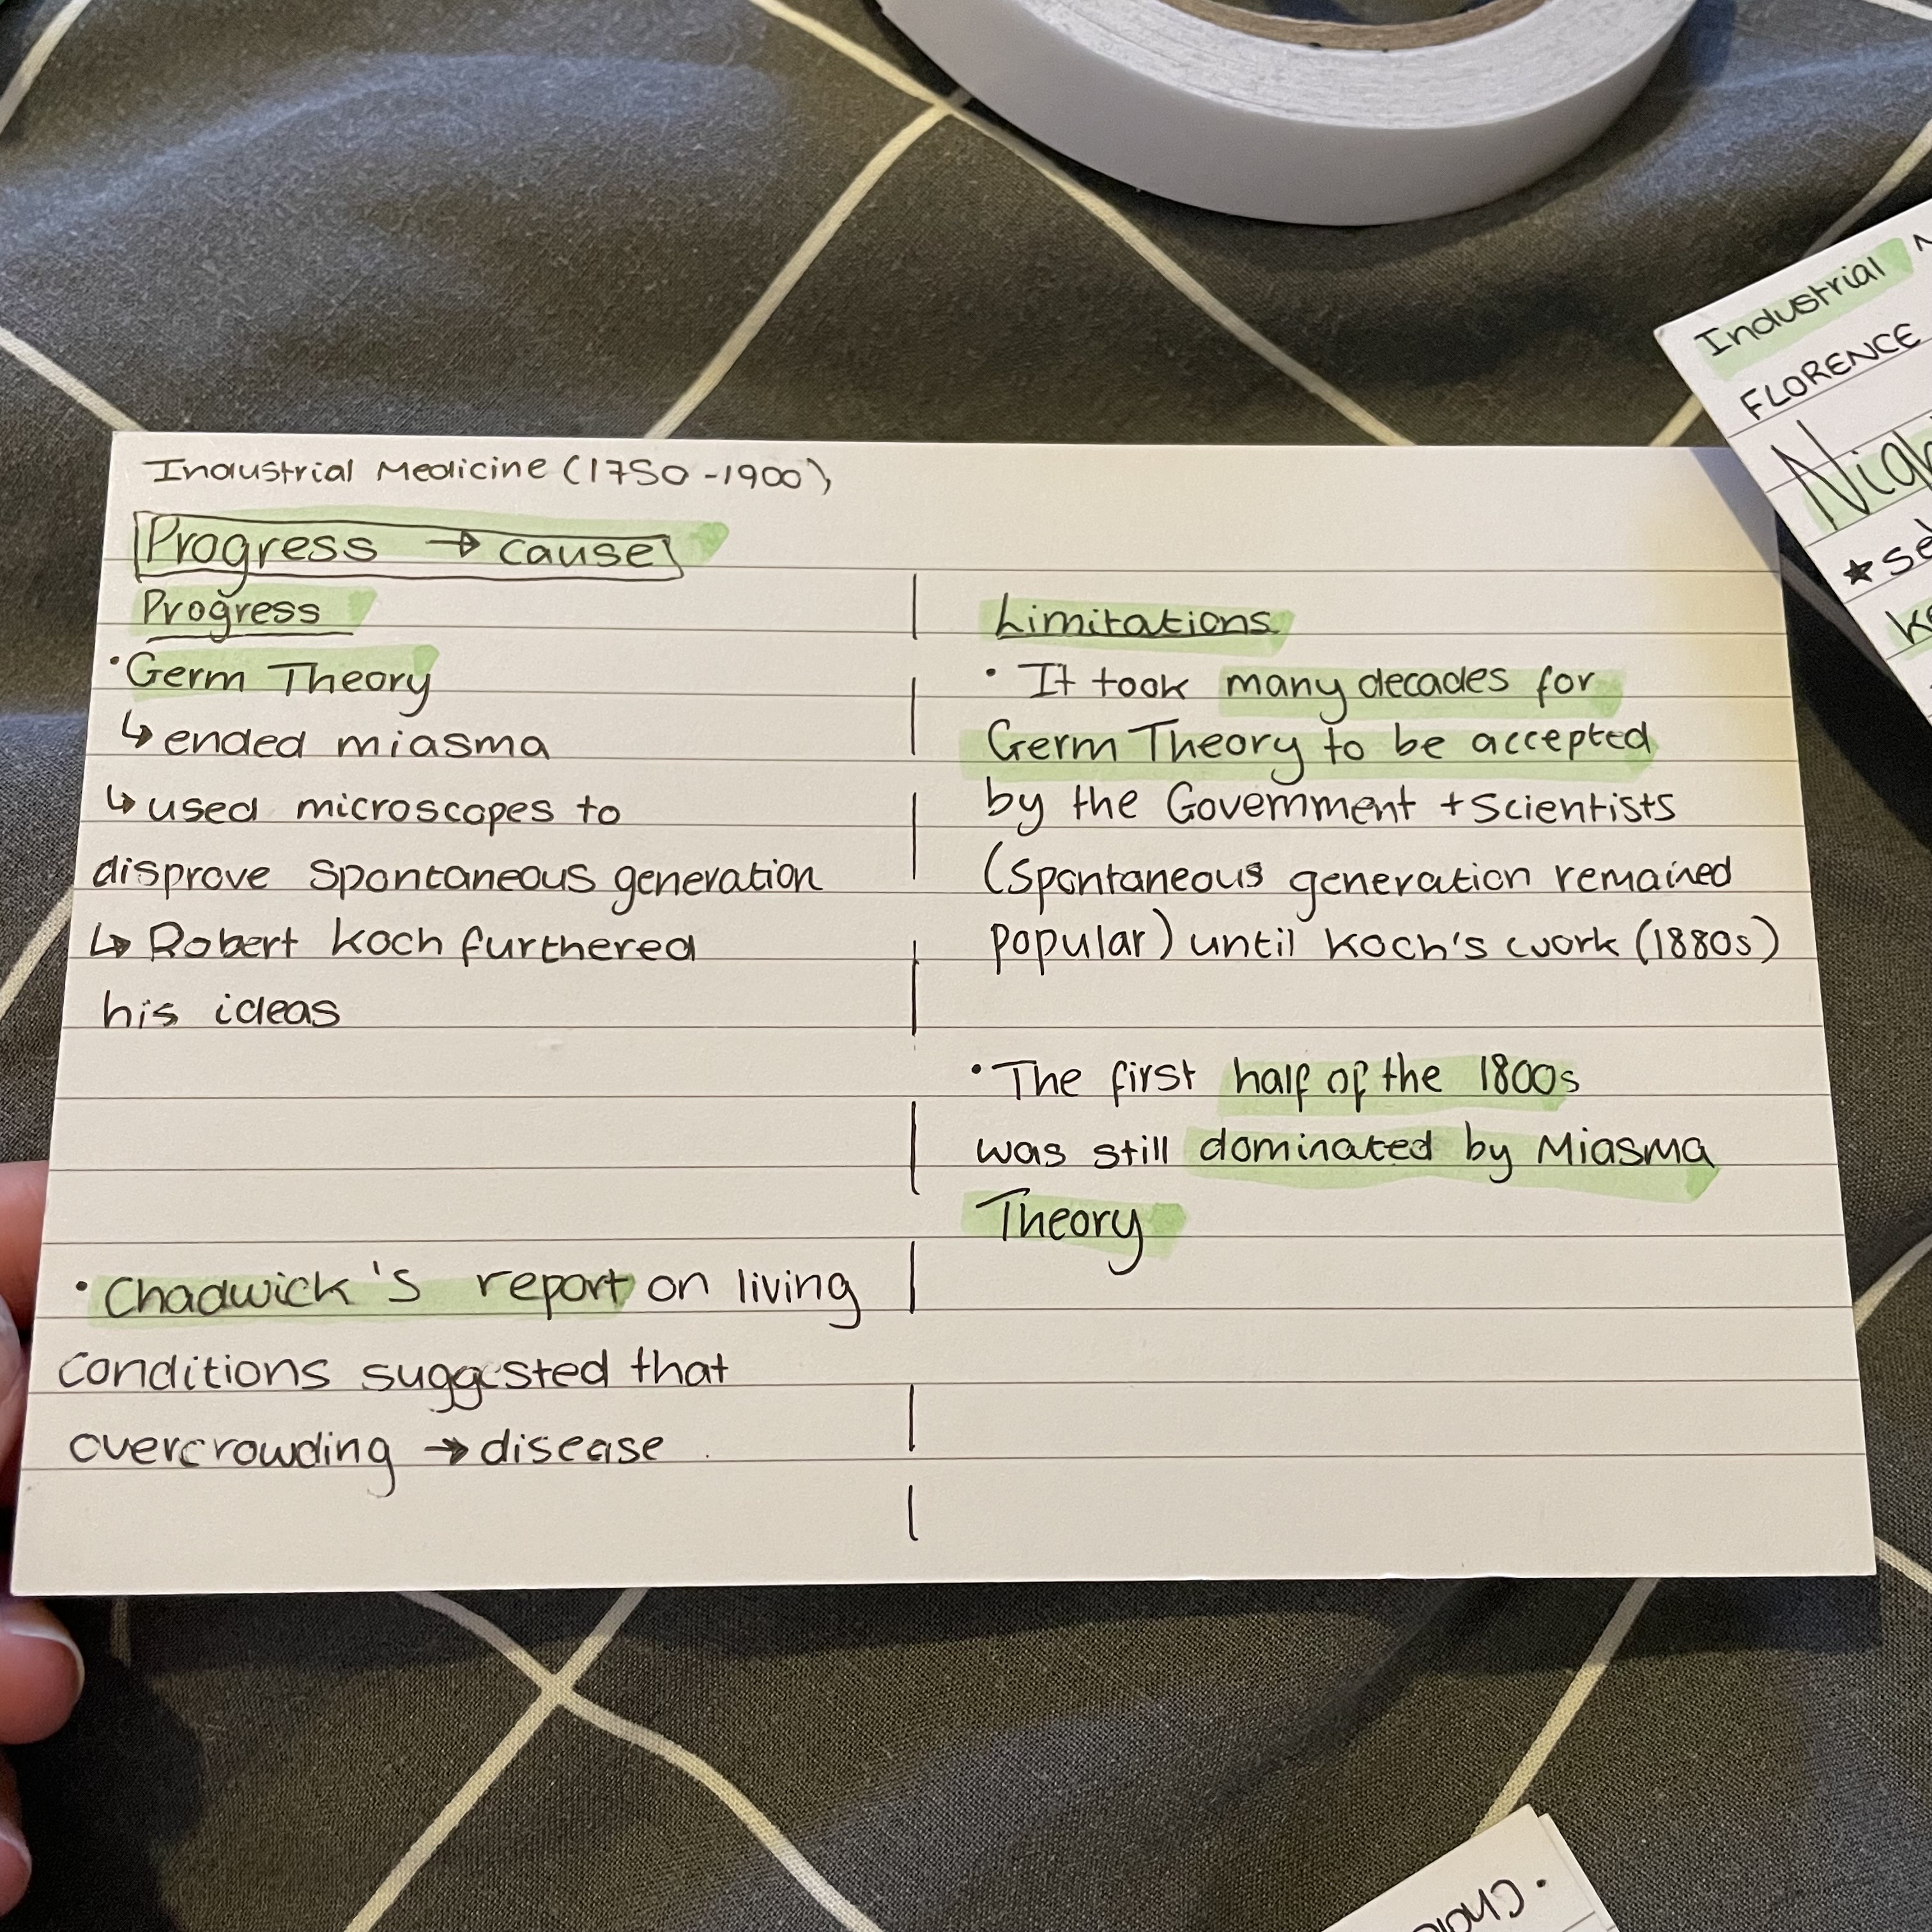 Industrial Medicine (1750-1900)
Progress → cause
Progress
• Germ Theory
↳ ended miasma
↳ used microscopes to
disprove spontaneous generation
↳ Robert Koch furthered
his ideas
• Chadwick's report on living
conditions suggested that
overcrowding → disease
Limitations
• It took many decades for
Germ Theory to be accepted
by the Government + Scientists
(spontaneous generation remained
popular) until Koch's work (1880s)
• The first half of the 1800s
was still dominated by Miasma
Theory
Industrial
FLORENCE